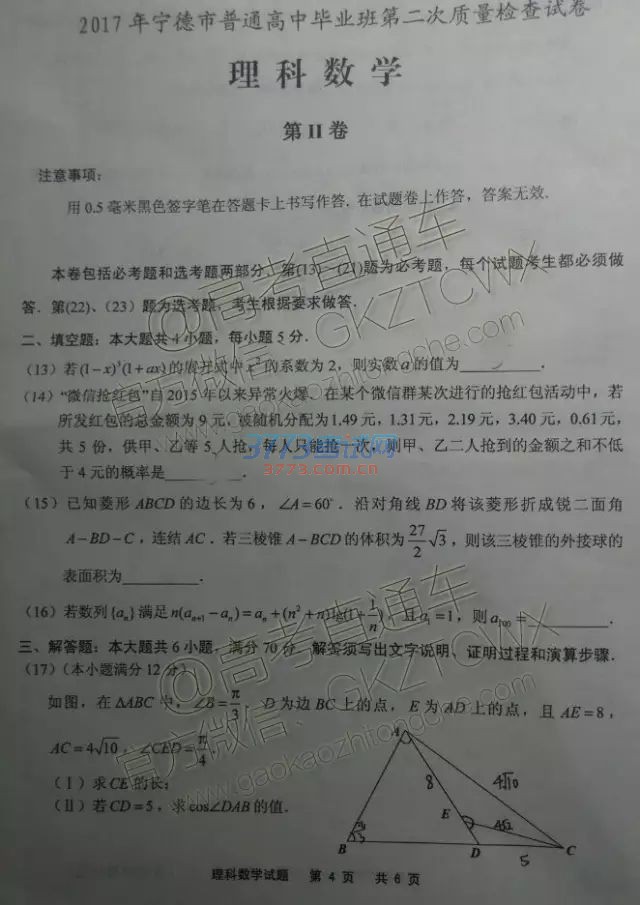 2017年宁德市普通高中毕业班第二次质量检查试卷
理科数学
第II卷
注意事项:
用0.5毫米黑色签字笔在答题卡上书写作答.在试题卷上作答,答案无效.
本卷包括必考题和选考题两部分.第(13)~(21)题为必考题,每个试题考生都必须做
答.第(22)、(23)题为选考题,考生根据要求做答.
二、填空题:本大题共4小题,每小题5分.
(13)若(1-x)⁵(1+ax)的展开式中x²的系数为2,则实数a的值为________.
(14)“微信抢红包”自2015年以来异常火爆、在某个微信群某次进行的抢红包活动中,若
所发红包的总金额为9元,被随机分配为1.49元,1.31元,2.19元,3.40元,0.61元,
共5份,供甲、乙等5人抢,每人只能抢一次,则甲、乙二人抢到的金额之和不低
于4元的概率是________.
(15)已知菱形ABCD的边长为6,∠A=60°.沿对角线BD将该菱形折成锐二面角
A-BD-C,连结AC.若三棱锥A-BCD的体积为27/2√3,则该三棱锥的外接球的
表面积为________.
(16)若数列{aₙ}满足n(aₙ₊₁-aₙ)=aₙ+(n²+n)lg(1+1/n),且a₁=1,则a₁₀₀=________.
三、解答题:本大题共6小题,满分70分.解答须写出文字说明、证明过程和演算步骤.
(17)(本小题满分12分)
如图,在△ABC中,∠B=π/3,D为边BC上的点,E为AD上的点,且AE=8,
AC=4√10,∠CED=π/4.
(Ⅰ)求CE的长;
(Ⅱ)若CD=5,求cos∠DAB的值.
A
8
4√10
E
4√2
B
D
C
5
理科数学试题 第4页 共6页
@高考直通车
官方微信:GKZTCWX
www.gaokaozhitongche.com
9773考试网
9773.com.cn
@高考直通车
官方微信:GKZTCWX
www.gaokaozhitongche.com